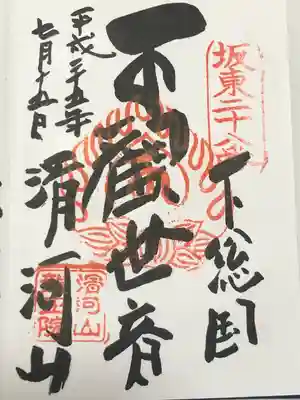 坂東二十八番
下総国
觀世音
滑河山
滑河山
院
平成二十五年
七月十五日